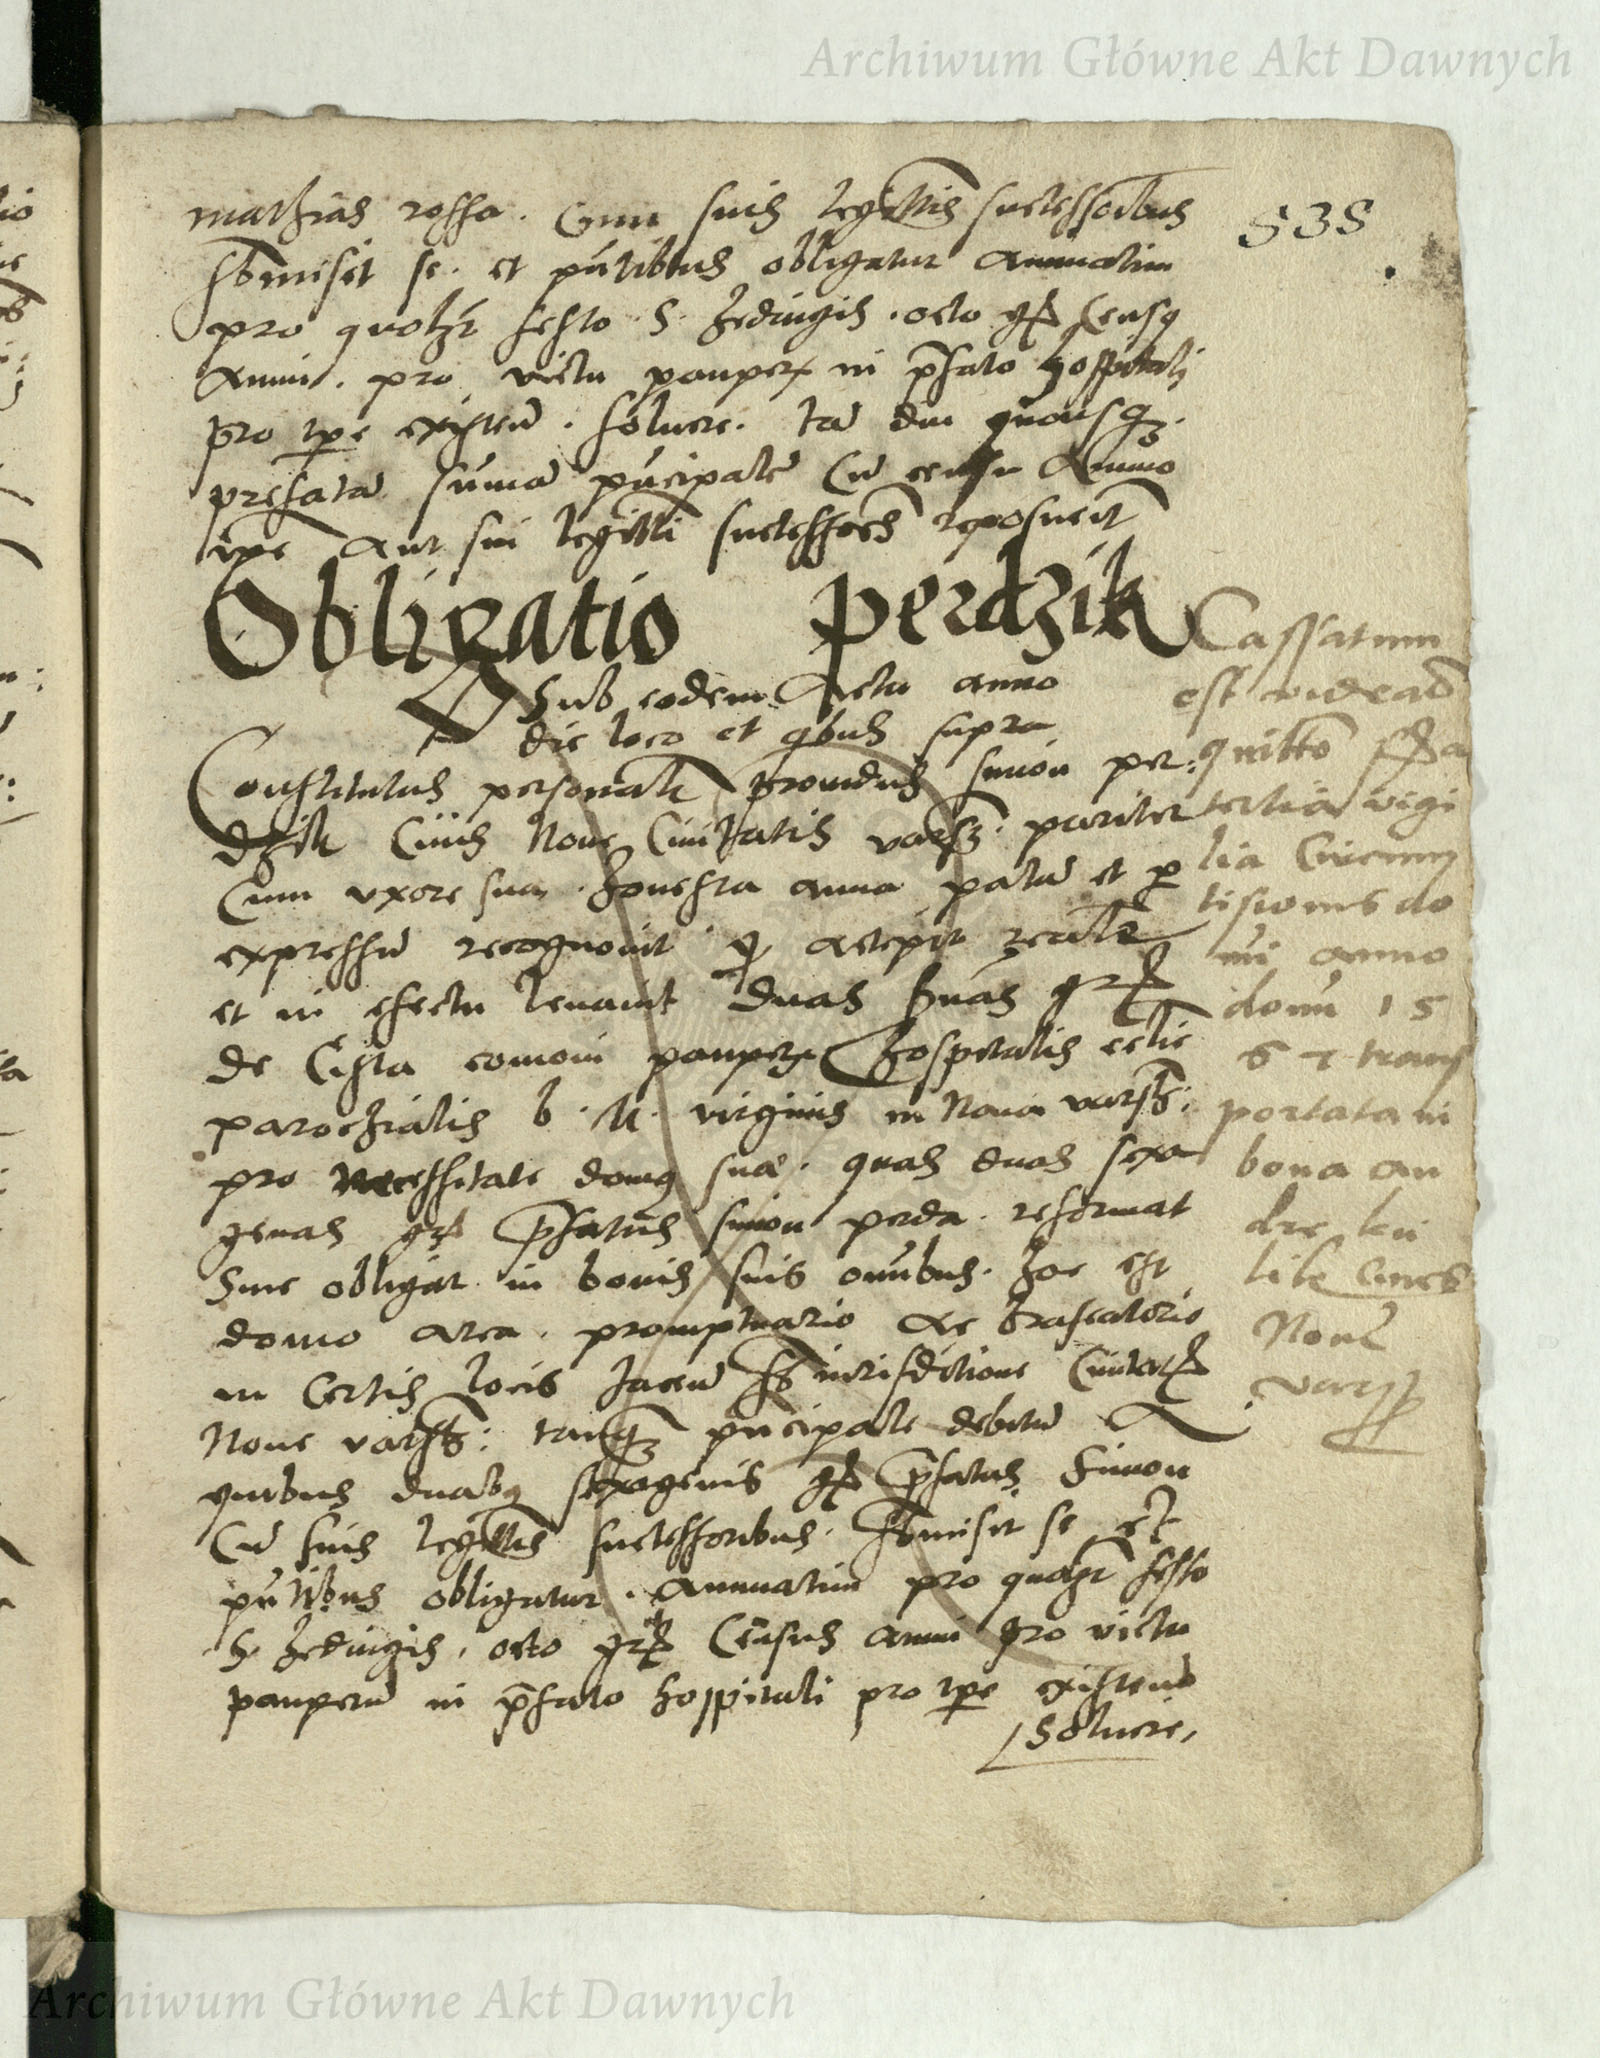 Archiwum Główne Akt Dawnych
535
mathias rossa. Cum suis legittis successoribus
sbmisit se. et pntibus obligatur annuatim
pro quolzt festo S. Hedvigis. octo gr census
annui. pro victu pauper in pfato hospitali
pro tpe existen. soluere. ta diu quousq
prefata suma pncipale cu censu annuo
ipe aut sui legitti successores reposuerit
Obligatio Perdzik
Sub eodem Actu anno
die loco et qbus supra
Constitutus personalr prouidus simon per
dzik Ciuis Noue Ciuitatis vars pariter
Cum vxore sua. honesta anna palam et p
expressum recognouit q accepit realr
et in efectu leuauit duas sexas gr
de Cista comoni pauper hospitalis eclie
parochialis b. M. virginis in Noua vars:
pro necessitate domus sue. quas duas sexa
genas gr pfatus simon perda. reformat
Siue obligat in bonis suis omibus. hoc est
domo area. promptuario ac braseatorio
in Certis locis Jacen sb iurisditione Ciuitatis
Noue vars: tanq pncipale debitu A
quibus duabus sexagenis gr pfatus Simon
Cu suis legittis successoribus. sbmisit se et
pntibus obligatur. annuatim pro quolzt festo
S. Hedvigis. octo gr Census annui pro victu
pauperu in pfato hospitali pro tpe existen
Soluere,
Cassatum
est videad
quitto
tertia vigi
lia Circum
tisionis do
mi anno
domi 15
6 1 trans
portata in
bona an
dre
Ciues
Noue
vars
Archiwum Główne Akt Dawnych